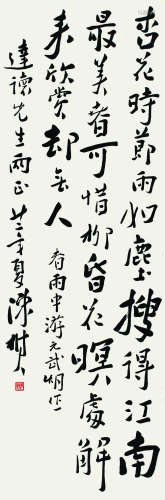 杏花時節雨如塵搜得江南
最美春可惜柳昏花暝處解
来欣赏却無人 春雨中游元武湖作
達讀先生两正 廿二年夏陳樹人